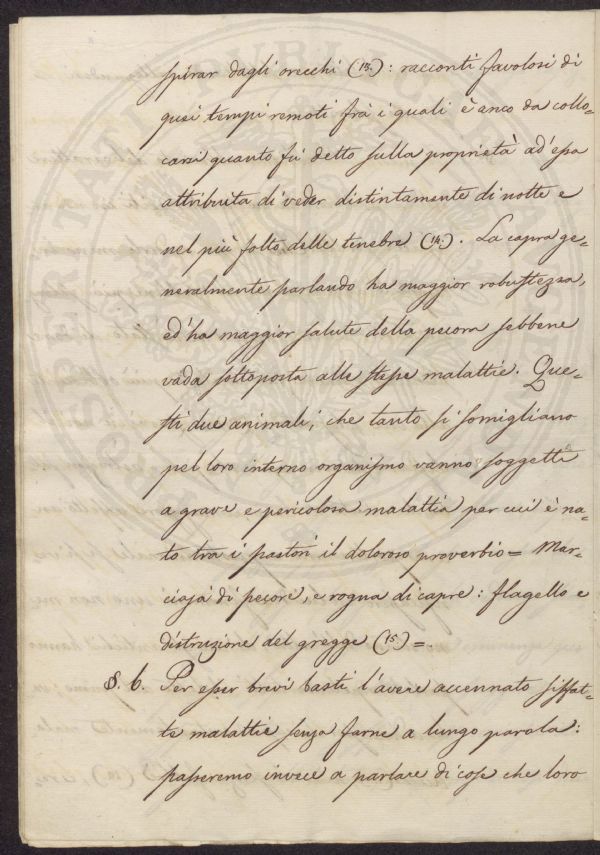 spirar dagli orecchi (13.): racconti favolosi di
quei tempi remoti frà i quali è anco da collo=
carsi quanto fù detto sulla proprietà ad'essa
attribuita di veder distintamente di notte e
nel più folto delle tenebre (14.). La capra ge=
neralmente parlando ha maggior robustezza,
ed'ha maggior salute della pecora sebbene
vada sottoposta alle stesse malattie. Que=
sti due animali, che tanto si somigliano
pel loro interno organismo vanno soggetti
a grave e pericolosa malattia per cui è na=
to tra i pastori il doloroso proverbio = Mar=
ciaja di pecore, e rogna di capre: flagello e
distruzione del gregge (15.) =.
§. 6. Per esser brevi basti l'avere accennato siffat=
te malattie senza farne a lungo parola:
passeremo invece a parlare di cose che loro